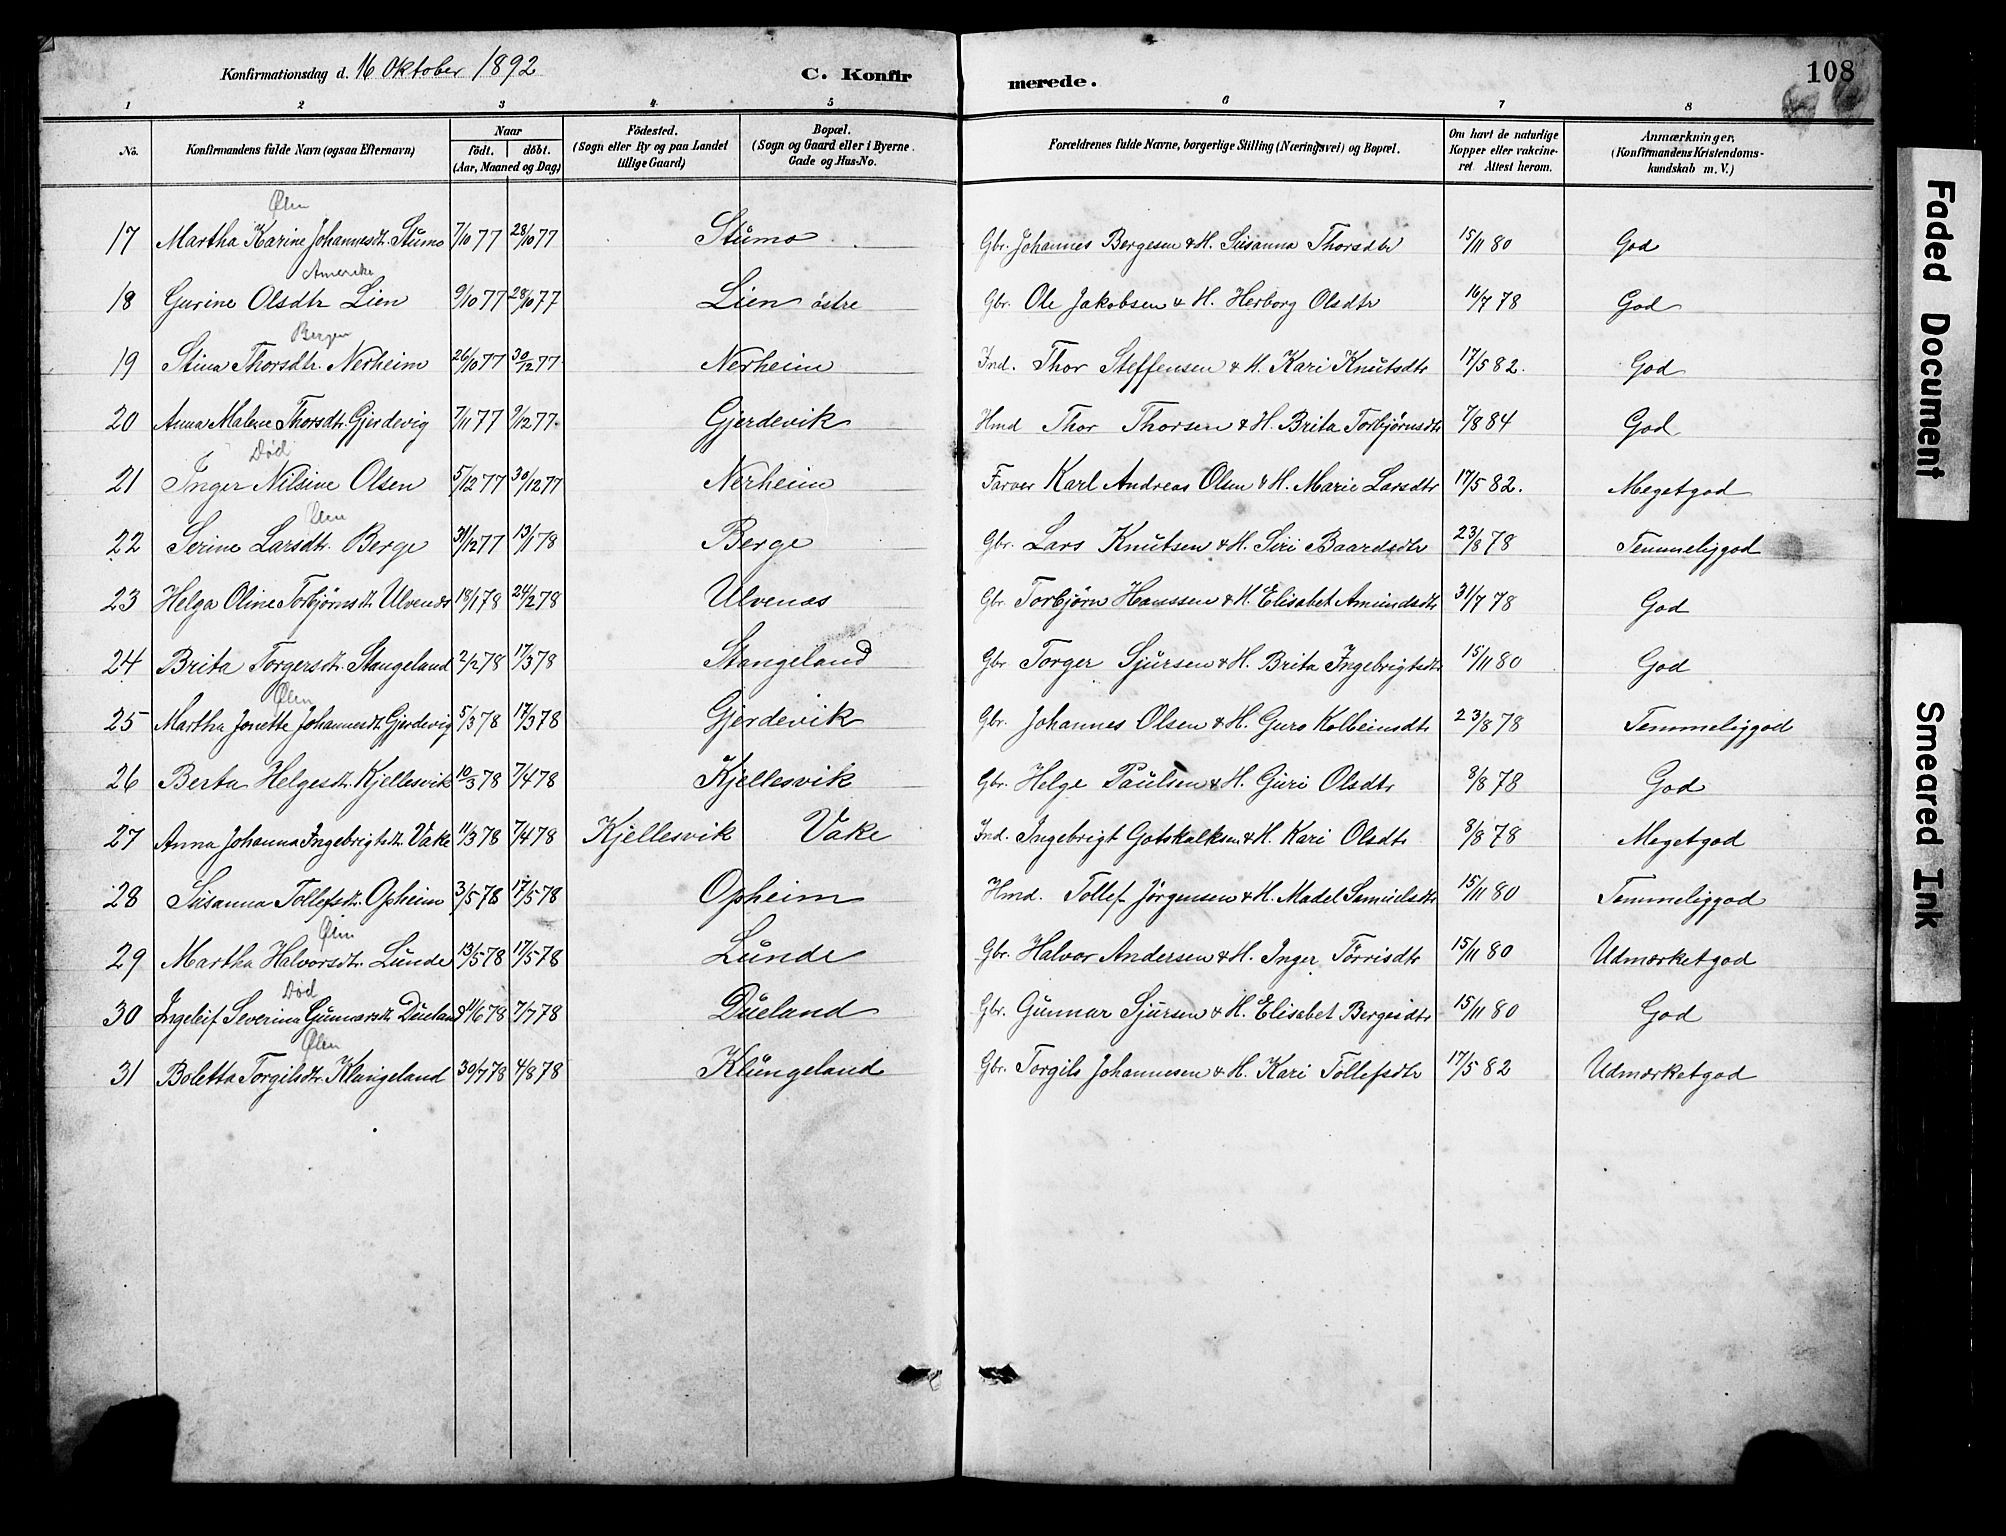 Konfirmationsdag d. 16 Oktober 1892
C. Konfir merede.
108
1 2 3 4 5 6 7 8
No. | Konfirmandens fulde Navn (ogsaa Efternavn) | Naar födt. döbt. (Aar, Maaned og Dag) | Födested. (Sogn eller By og paa Landet tillige Gaard) | Bopæl. (Sogn og Gaard eller i Byerne Gade og Hus-No. | Forældrenes fulde Navne, borgerlige Stilling (Næringsvei) og Bopæl. | Om havt de naturlige Kopper eller vakcineret Attest herom. | Anmærkninger, (Konfirmandens Kristendomskundskab m. V.)
Ølen
17 Martha Karine Johannesdt. Stumo 7/10 77 28/10 77 Stumo Gbr. Johannes Bergesen & H. Susanna Thorsdtr 15/11 80 God
Amerika
18 Gurine Olsdtr Lien 9/10 77 28/10 77 Lien östre Gbr. Ole Jakobsen & H. Herborg Olsdtr 16/7 78 God
Bergen
19 Stina Thorsdtr. Nerheim 26/10 77 30/12 77 Nerheim Ind. Thor Steffensen & H. Kari Knutsdtr 17/5 82. God
20 Anna Malene Thorsdt. Gjerdevig 7/11 77 9/12 77 Gjerdevik Hmd Thor Thorsen & H. Brita Torbjørnsdtr 7/8 84 God
Död
21 Inger Nilsine Olsen 5/12 77 30/12 77 Nerheim Farver Karl Andreas Olsen & H. Marie Larsdtr 17/5 82. Megetgod
Ølen
22 Serine Larsdtr. Berge 31/12 77 13/1 78 Berge Gbr. Lars Knutsen & H. Siri Baardsdtr 23/8 78 Temmeliggod
23 Helga Oline Torbjørnsdt. Ulvenæs 18/1 78 24/2 78 Ulvenæs Gbr. Torbjørn Hanssen & H. Elisabet Amundsdtr 31/7 78 God
24 Brita Torgersdt. Stangeland 2/2 78 17/3 78 Stangeland Gbr. Torger Sjursen & H. Brita Ingebrigtsdtr 15/11 80 God
Ølen
25 Martha Jonette Johannesdt. Gjerdevig 5/3 78 17/3 78 Gjerdevik Gbr. Johannes Olsen & H. Guro Kolbeinsdtr 23/8 78 Temmeliggod
26 Berta Helgesdt. Kjellesvik 10/3 78 7/4 78 Kjellesvik Gbr. Helge Paulsen & H. Guri Olsdtr 8/8 78 God
27 Anna Johanna Ingebrigtsdt. Vake 11/3 78 7/4 78 Kjellesvik Vake Ind. Ingebrigt Gotskalksen & H. Kari Olsdtr 8/8 78 Megetgod
28 Susanna Tollefsdt. Opheim 3/5 78 17/5 78 Opheim Hmd. Tollef Jörgensen & H. Madel Samuelsdtr 15/11 80 Temmeliggod
Ølen
29 Martha Halvorsdt. Lunde 13/5 78 17/5 78 Lunde Gbr. Halvor Andersen & H. Inger Törrisdtr 15/11 80 Udmærketgod
Död
30 Ingeleif Severina Gunnarsdt. Dueland 11/6 78 7/7 78 Dueland Gbr. Gunnar Sjursen & H. Elisabet Bergesdtr 15/11 80 God
Ølen
31 Boletta Torgilsdtr. Klungeland 30/7 78 4/8 78 Klungeland Gbr. Torgils Johannesen & H. Kari Tollefsdtr 17/5 82 Udmærketgod
Faded Document
Smeared Ink